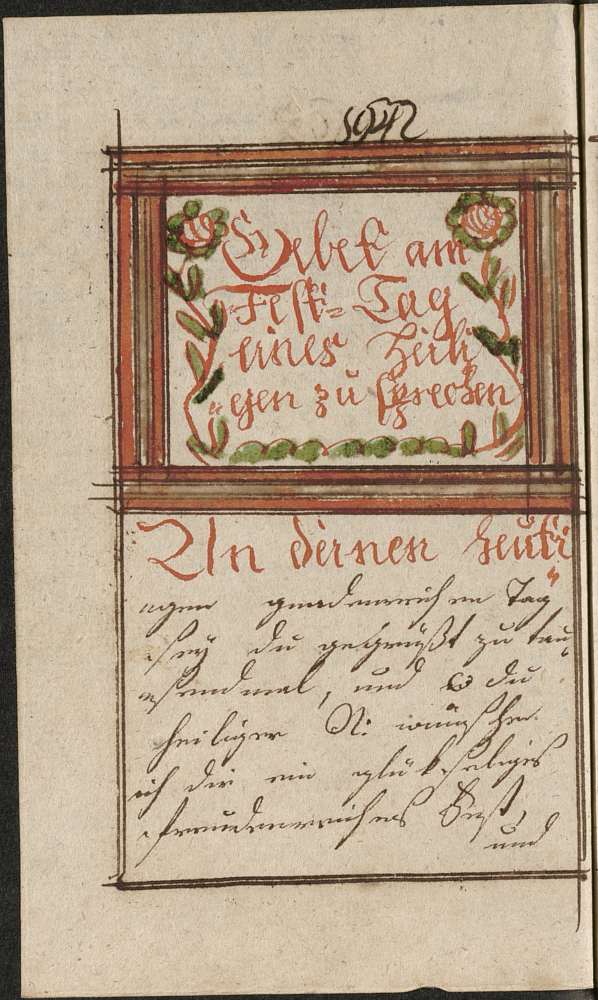 Gebet am
Fest-Tag
eines Heili
"gen zu sprechen
An deinen heuti
"gen gnadenreichen Tag
sey du gegrüßt zu tau
"sendmal, und O du
heiliger N: wünsche
ich dir ein glükseliges
freudenreiches Fest,
und